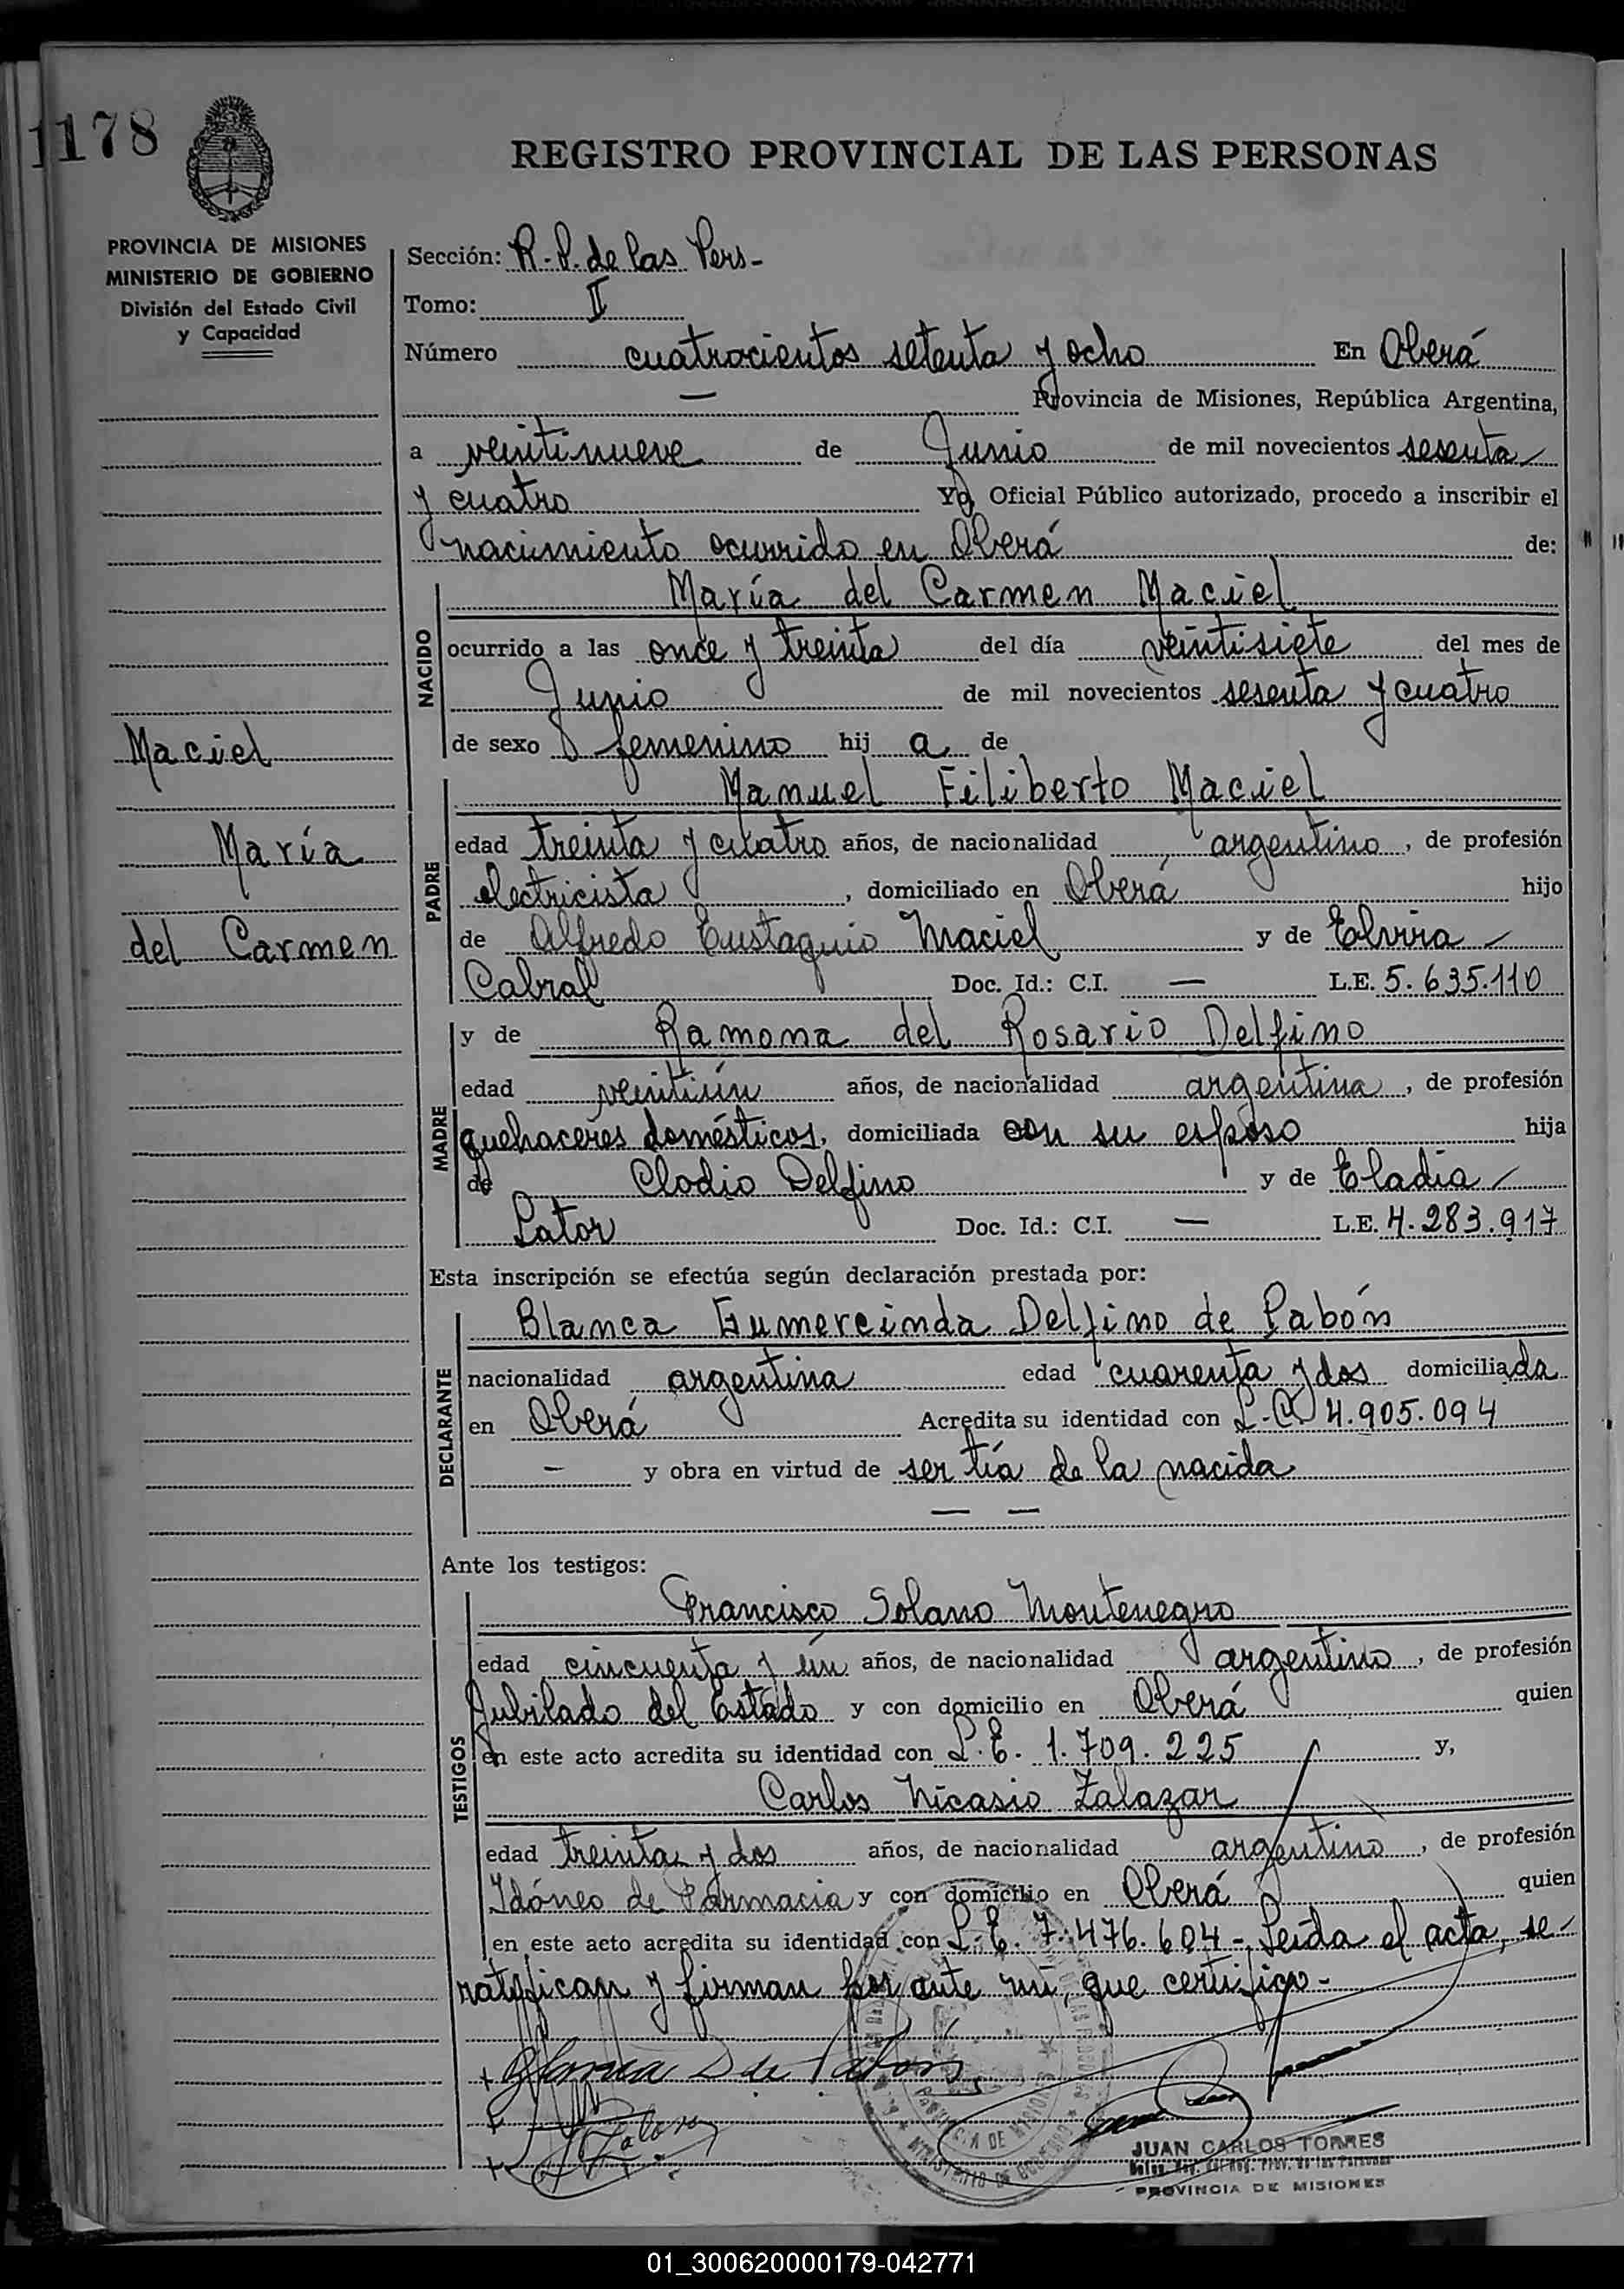 1178
REGISTRO PROVINCIAL DE LAS PERSONAS
PROVINCIA DE MISIONES
MINISTERIO DE GOBIERNO
División del Estado Civil
y Capacidad
Maciel
María
del Carmen
Sección: R.P. de las Pers-
Tomo: II
Número cuatrocientos setenta y ocho En Oberá
— Provincia de Misiones, República Argentina,
a veintinueve de Junio de mil novecientos sesenta
y cuatro Yo, Oficial Público autorizado, procedo a inscribir el
nacimiento ocurrido en Oberá de:
NACIDO
María del Carmen Maciel
ocurrido a las once y treinta del día veintisiete del mes de
Junio de mil novecientos sesenta y cuatro
de sexo femenino hij a de
PADRE
Manuel Filiberto Maciel
edad treinta y cuatro años, de nacionalidad argentino, de profesión
electricista, domiciliado en Oberá hijo
de Alfredo Eustaquio Maciel y de Elvira
Cabral Doc. Id.: C.I. — L.E. 5.635.110
MADRE
y de Ramona del Rosario Delfino
edad veintiún años, de nacionalidad argentina, de profesión
quehaceres domésticos, domiciliada con su esposo hija
de Clodio Delfino y de Eladia
Doc. Id.: C.I. — L.E. 4.283.917
Esta inscripción se efectúa según declaración prestada por:
DECLARANTE
Blanca Gumercinda Delfino de Pabón
nacionalidad argentina edad cuarenta y dos domiciliada
en Oberá Acredita su identidad con L.C. 4.905.094
— y obra en virtud de ser tía de la nacida
— —
Ante los testigos:
TESTIGOS
Francisco Solano Montenegro
edad cincuenta y un años, de nacionalidad argentino, de profesión
Jubilado del Estado y con domicilio en Oberá quien
en este acto acredita su identidad con L.E. 1.709.225 y,
Carlos Nicasio Zalazar
edad treinta y dos años, de nacionalidad argentino, de profesión
Idóneo de Farmacia y con domicilio en Oberá quien
en este acto acredita su identidad con L.E. 7.476.604-, Leída el acta, se
ratifican y firman por ante mí, que certifico-
JUAN CARLOS TORRES
PROVINCIA DE MISIONES
01_300620000179-042771